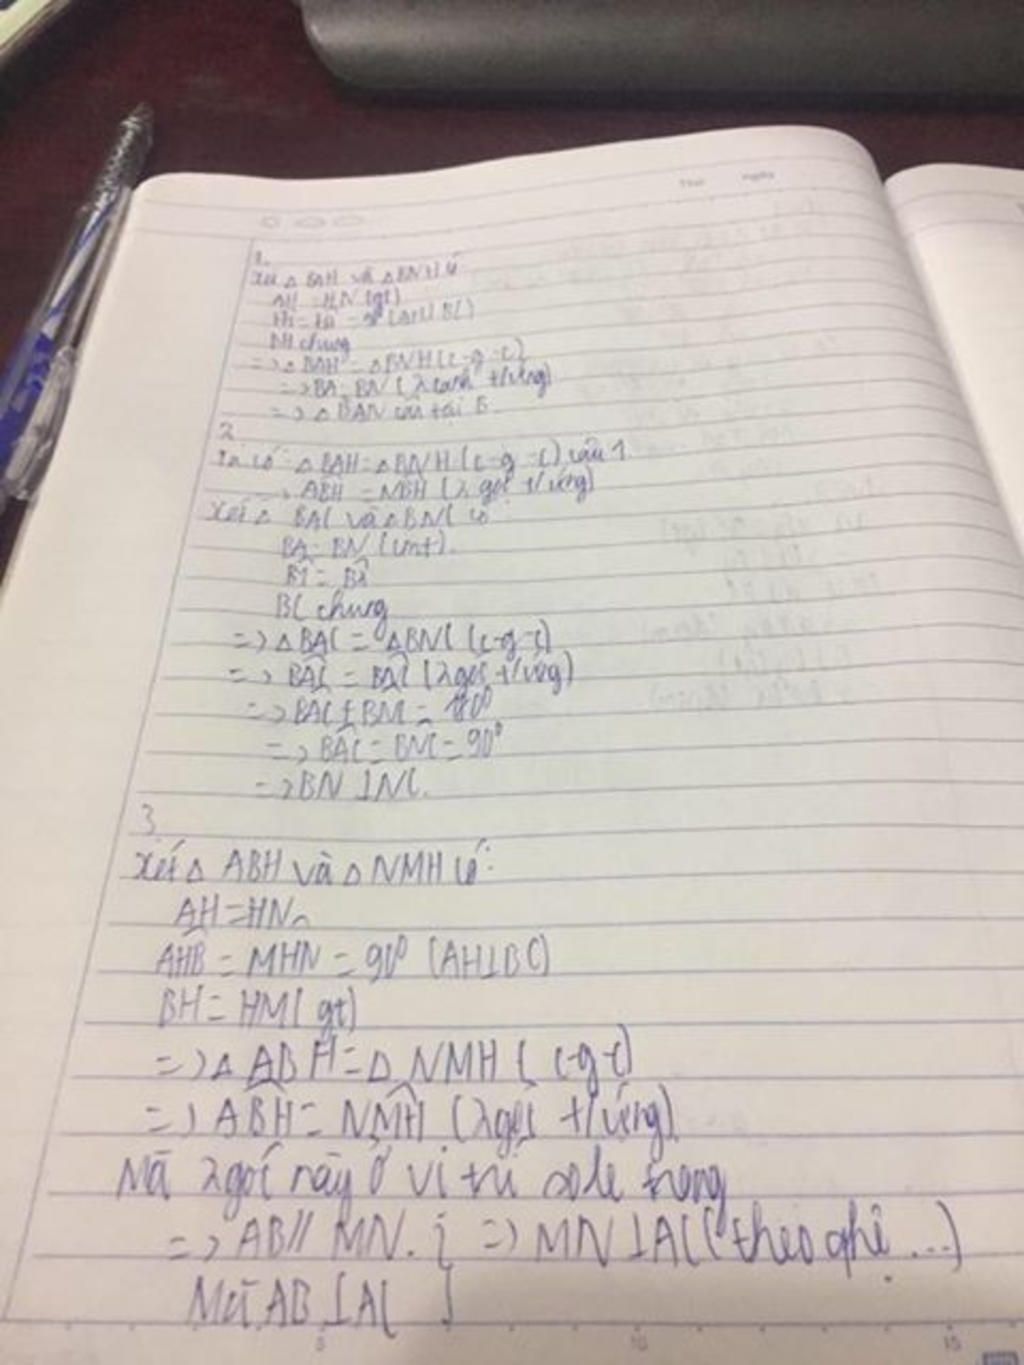 Thứ Ngày
1.
Xét △ BAH và △BNH có
AH = HN (gt)
H1 = H2 = 90⁰ (AH⊥BC)
BH chung
=> △ BAH = △BNH (c-g-c)
=> BA = BN (2 cạnh t/ứng)
=> △ BAN cân tại B
2
Ta có △ BAH = △ BNH (c-g-c) câu 1
=> ABH = NBH (2 góc t/ứng)
Xét △ BAC và △ BNC có
BA = BN (cmt).
B̂1 = B̂2
BC chung
=> △ BAC = △BNC (c-g-c)
=> BAC = BAC (2 góc t/ứng)
=> BAC + BNC = 180⁰
=> BAC = BNC = 90⁰
=> BN ⊥ NC.
3
Xét △ ABH và △ NMH có:
AH = HN
AHB = MHN = 90⁰ (AH⊥BC)
BH = HM (gt)
=> △ ABH = △ NMH (c-g-c)
=> ABH = NMH (2 góc t/ứng)
Mà 2 góc này ở vị trí sole trong
=> AB // MN. } => MN ⊥ AC (theo qhệ ...)
Mà AB ⊥ AC
5 10 15